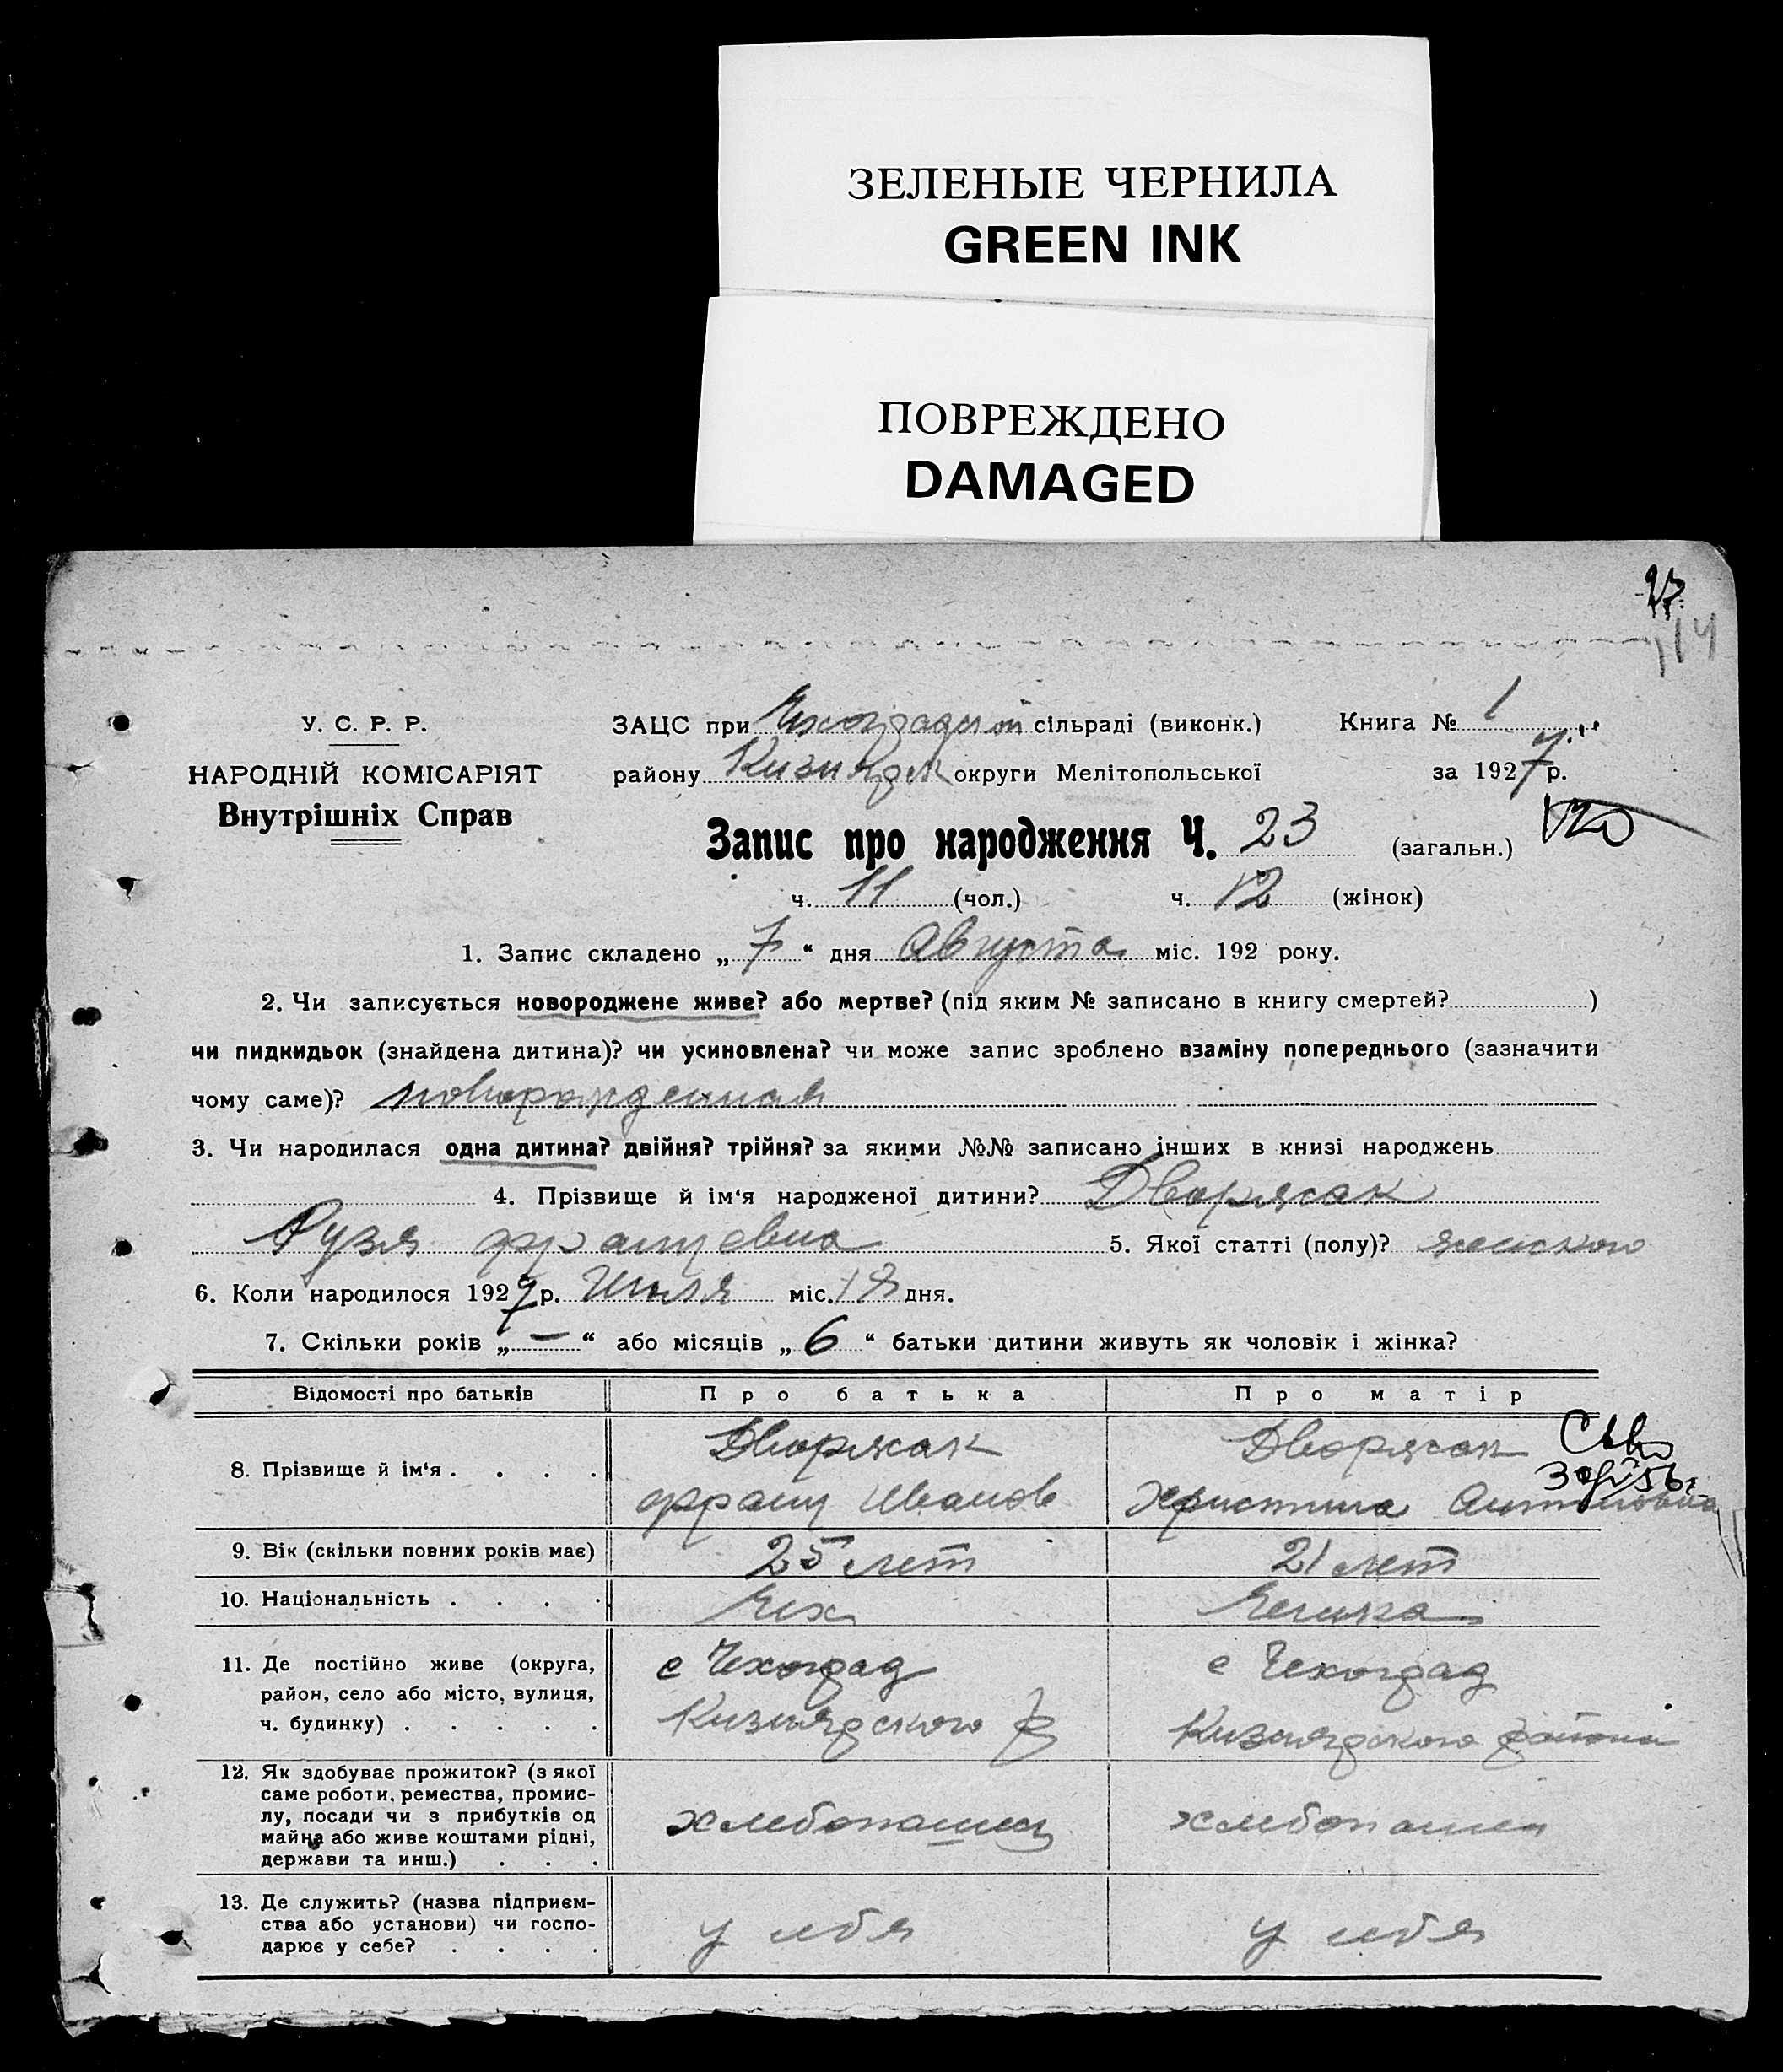 ЗЕЛЕНЫЕ ЧЕРНИЛА
GREEN INK
ПОВРЕЖДЕНО
DAMAGED
23
114
У. С. Р. Р.
НАРОДНІЙ КОМІСАРІЯТ
Внутрішніх Справ
ЗАЦС при Чехоградской сільраді (виконк.)
Книга № 1
району Кизиярск округи Мелітопольської
за 1927 р.
Запис про народження Ч. 23 (загальн.)
ч. 11 (чол.) ч. 12 (жінок)
1. Запис складено „ 7 “ дня Августа міс. 192 року.
2. Чи записується новороджене живе? або мертве? (під яким № записано в книгу смертей? )
чи пидкидьок (знайдена дитина)? чи усиновлена? чи може запис зроблено взаміну попереднього (зазначити
чому саме)? новорожденная
3. Чи народилася одна дитина? двійня? трійня? за якими №№ записано інших в книзі народжень
4. Прізвище й ім‘я народженої дитини? Дворжак
Рузя францевна 5. Якої статті (полу)? женского
6. Коли народилося 1927 р. Июля міс. 18 дня.
7. Скільки років „ — “ або місяців „ 6 “ батьки дитини живуть як чоловік і жінка?
Відомості про батьків Про батька Про матір
8. Прізвище й ім‘я . . . .
Дворжак
франц Иванов
Дворжак
Христина Антоновна
9. Вік (скільки повних років має) 25 лет 21 лет
10. Національність . . . . Чех Чешка
11. Де постійно живе (округа,
район, село або місто, вулиця,
ч. будинку) . . . . .
с Чехоград
Кизиярского р
с Чехоград
Кизиярского района
12. Як здобуває прожиток? (з якої
саме роботи, ремества, промис-
лу, посади чи з прибутків од
майна або живе коштами рідні,
держави та инш.) . . .
хлебопашец
хлебопашец
13. Де служить? (назва підприєм-
ства або установи) чи госпо-
дарює у себе? . . . .
у себя
у себя